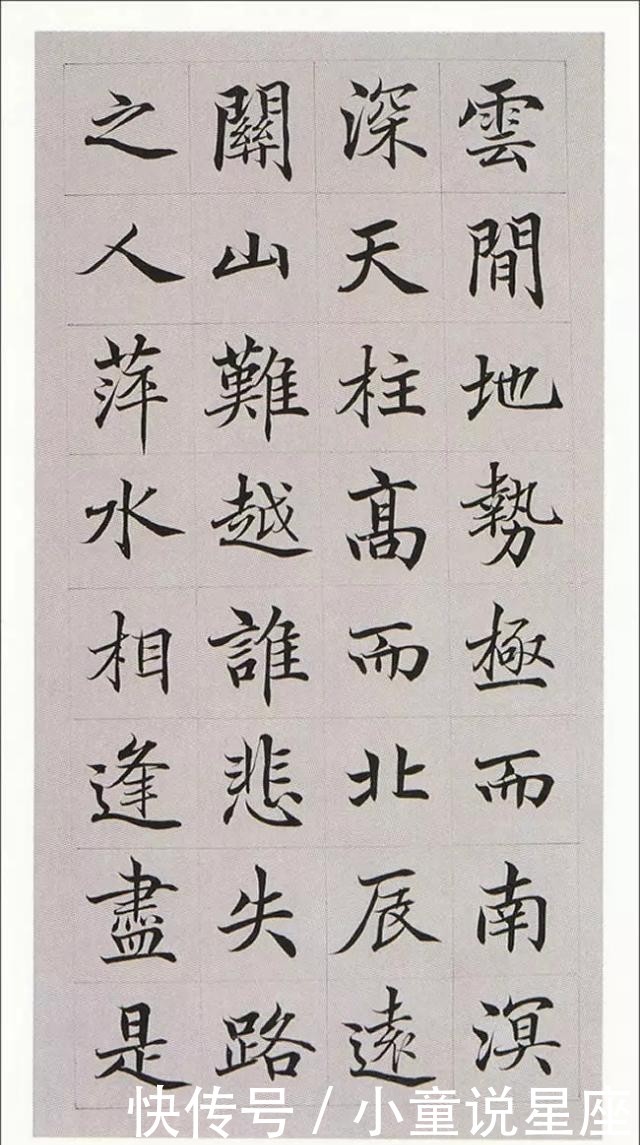 雲間地勢極而南溟
深天柱高而北辰遠
關山難越誰悲失路
之人萍水相逢盡是
快传号 / 小童说星座